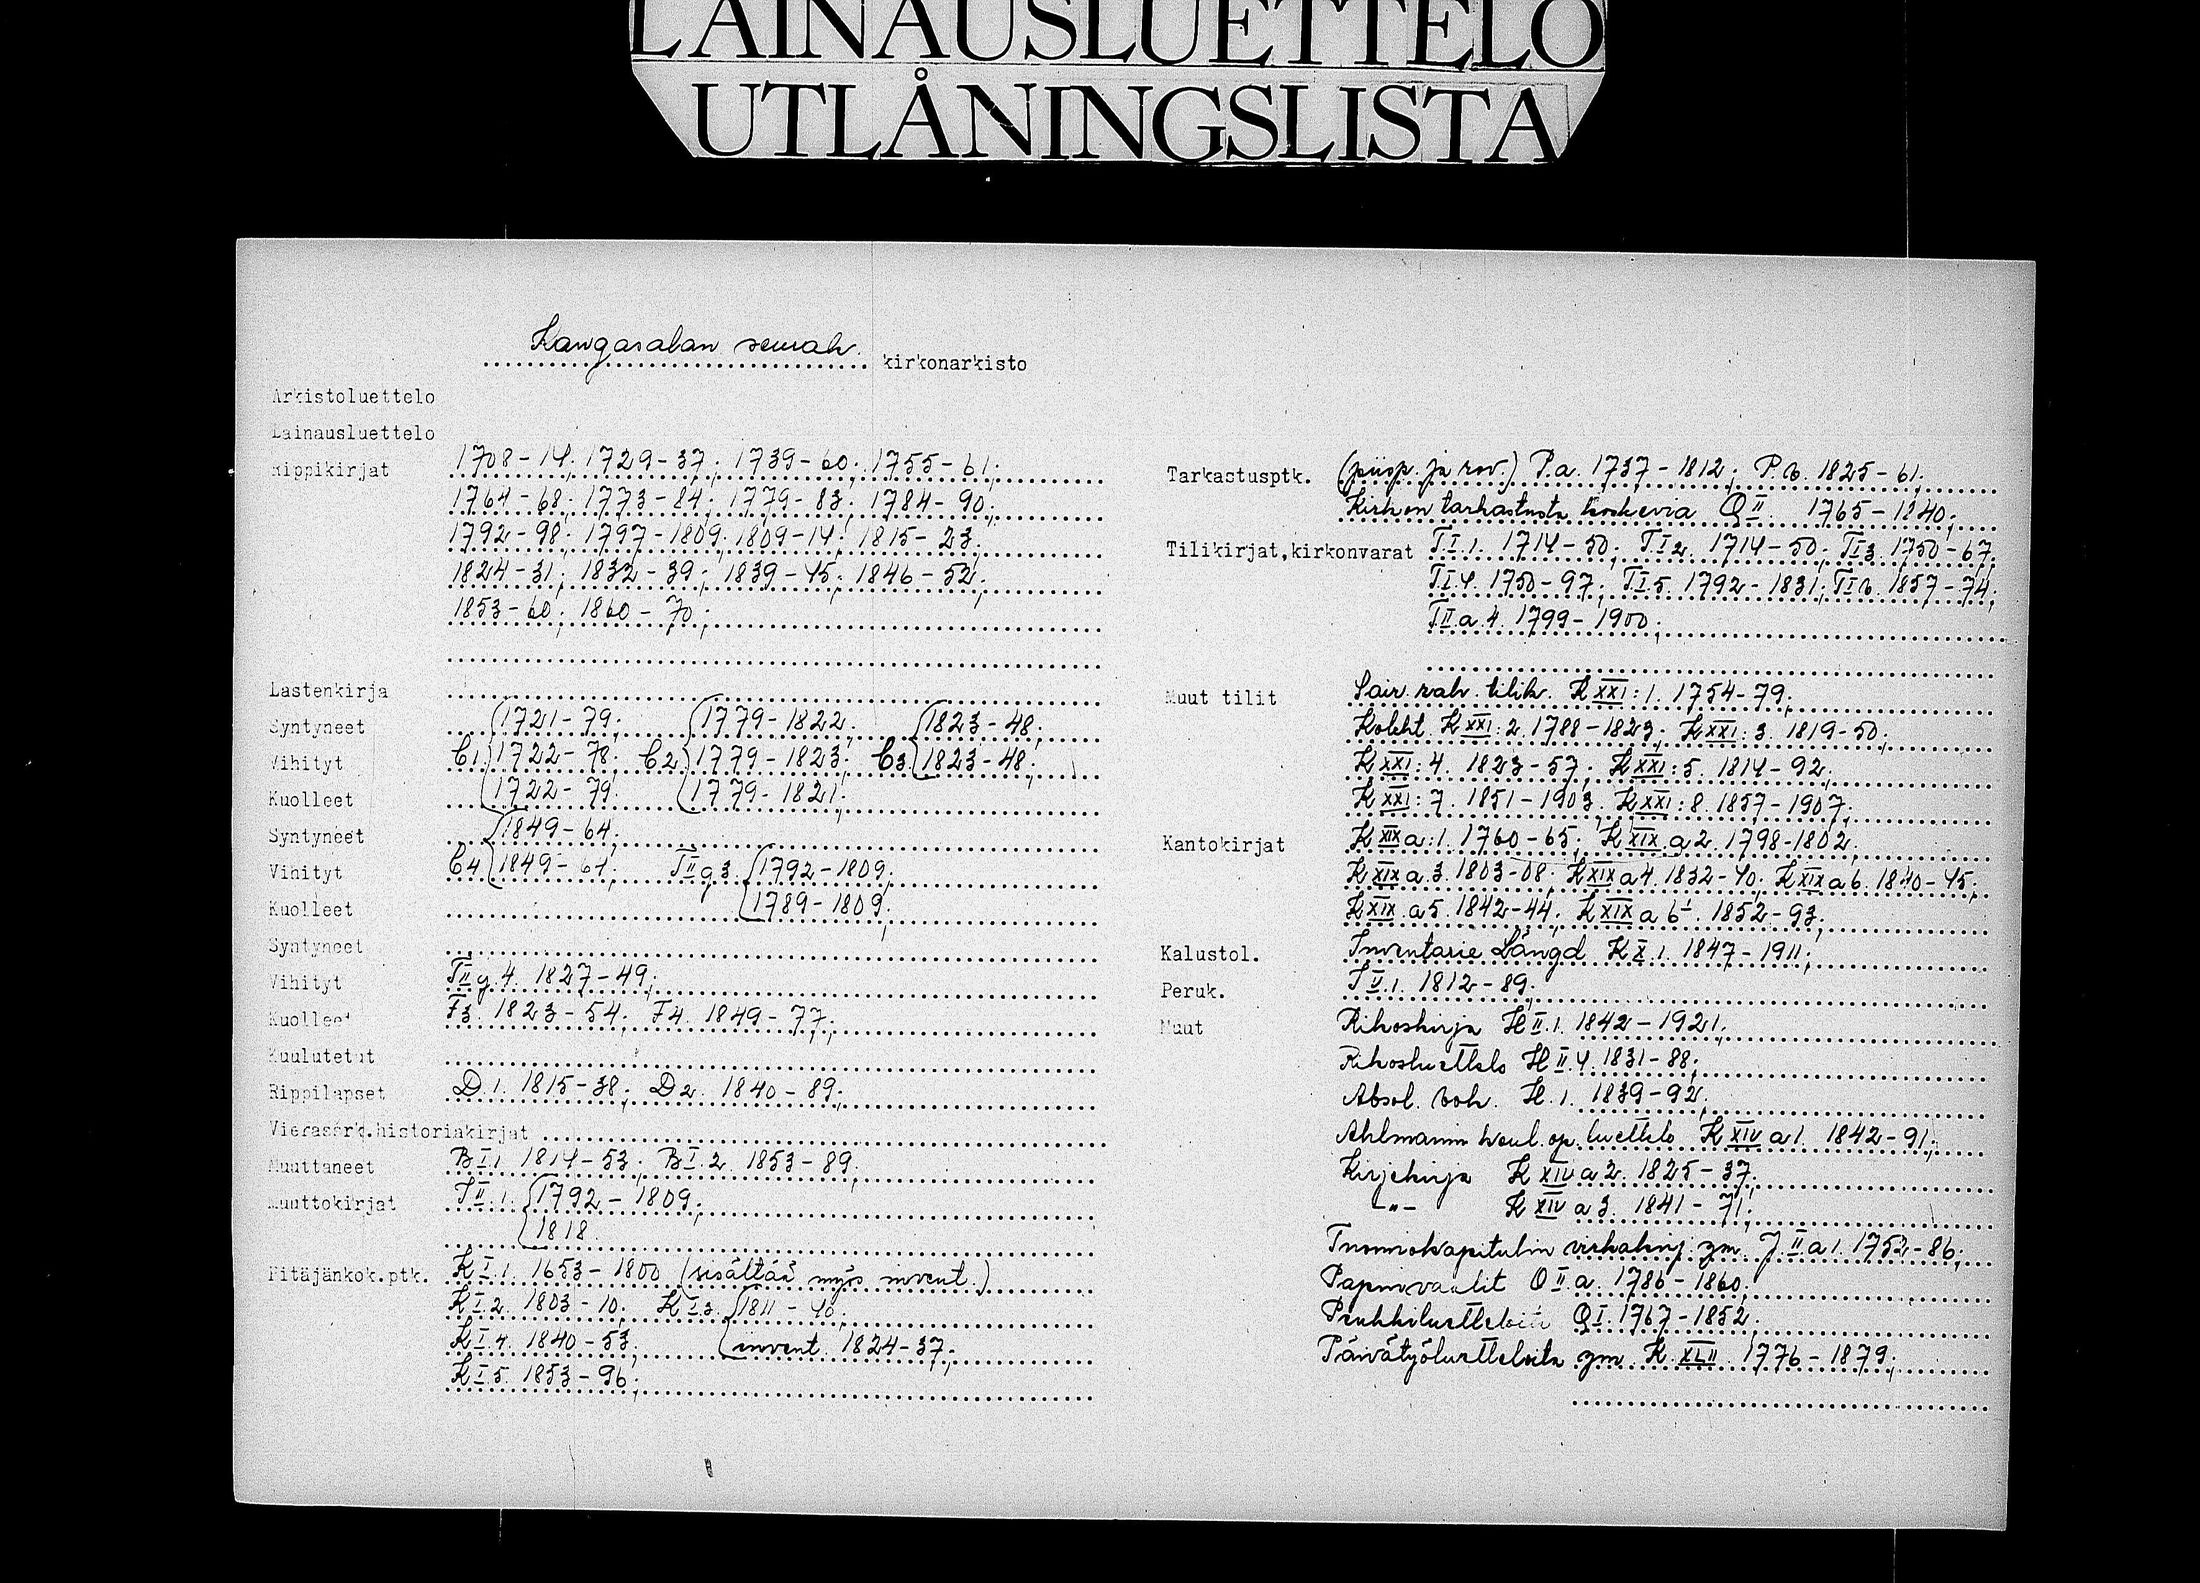 LAINAUSLUETTELO
UTLÅNINGSLISTA
Kangasalan seurak. kirkonarkisto
Arkistoluettelo
Lainausluettelo
Rippikirjat 1708-14; 1729-37; 1739-60; 1755-61;
1764-68; 1773-84; 1779-83; 1784-90;
1792-98; 1797-1809; 1809-14; 1815-23;
1824-31; 1832-39; 1839-45; 1846-52;
1853-60; 1860-70;
Lastenkirja
Syntyneet 1721-79; 1779-1822; 1823-48;
Vihityt C1. 1722-78; C2 1779-1823; C3. 1823-48;
Kuolleet 1722-79. 1779-1821;
Syntyneet 1849-64;
Vihityt C4. 1849-61; TII g3. 1792-1809;
Kuolleet 1789-1809;
Syntyneet
Vihityt TII g 4. 1827-49;
Kuolleet F3. 1823-54; F4. 1849-77;
Kuulutetut
Rippilapset D.1. 1815-38; D2. 1840-89;
Vierassrk.historiakirjat
Muuttaneet BI.1 1814-53; BI.2. 1853-89;
Muuttokirjat JII.1. 1792-1809;
1818.
Pitäjänkok.ptk. KI.1. 1653-1800 (sisältää myös invent.)
KI.2. 1803-10; KI.3. 1811-40;
KI.4. 1840-53; invent. 1824-37;
KI.5. 1853-96;
Tarkastusptk. (piisp. ja rov.) P.a. 1737-1812; P.b. 1825-61;
Kirkon tarkastusta koskevia QII. 1765-1840;
Tilikirjat,kirkonvarat TI.1. 1714-50; TI2. 1714-50; TI3. 1750-67.
TI.4. 1750-97; TI.5. 1792-1831; TI6. 1857-74;
TII.a.4. 1799-1900;
Muut tilit Sair. rah. tilik. KXXI:1. 1754-79;
Koleht. KXXI:2. 1788-1823; KXXI:3. 1819-50;
KXXI:4. 1823-57; KXXI:5. 1814-92;
KXXI:7. 1851-1903; KXXI:8. 1857-1907;
Kantokirjat KXIXa:1. 1760-65; KXIX a2. 1798-1802;
KXIX a.3. 1803-08; KXIX a4. 1832-40; KXIX a6. 1840-45;
KXIX.a5. 1842-44; KXIX a 6¹. 1852-93;
Kalustol. Inventarie Längd KX.1. 1847-1911;
Peruk. IV.1. 1812-89;
Muut Rikoskirja HII.1. 1842-1921;
Rikosluettelo HII.4. 1831-88;
Absol. bok. H.1. 1839-92;
Ahlmannin koul. op. luettelo KXIV a1. 1842-91;
Kirjekirja KXIV a2. 1825-37;
-"- KXIV a3. 1841-71;
Tuomiokapitulin virkakirj. ym. JII a1. 1752-86;
Papinvaalit OII a. 1786-1860;
Penkkiluetteloita QI. 1767-1852;
Päivätyöluetteloita ym K. XLII 1776-1879;